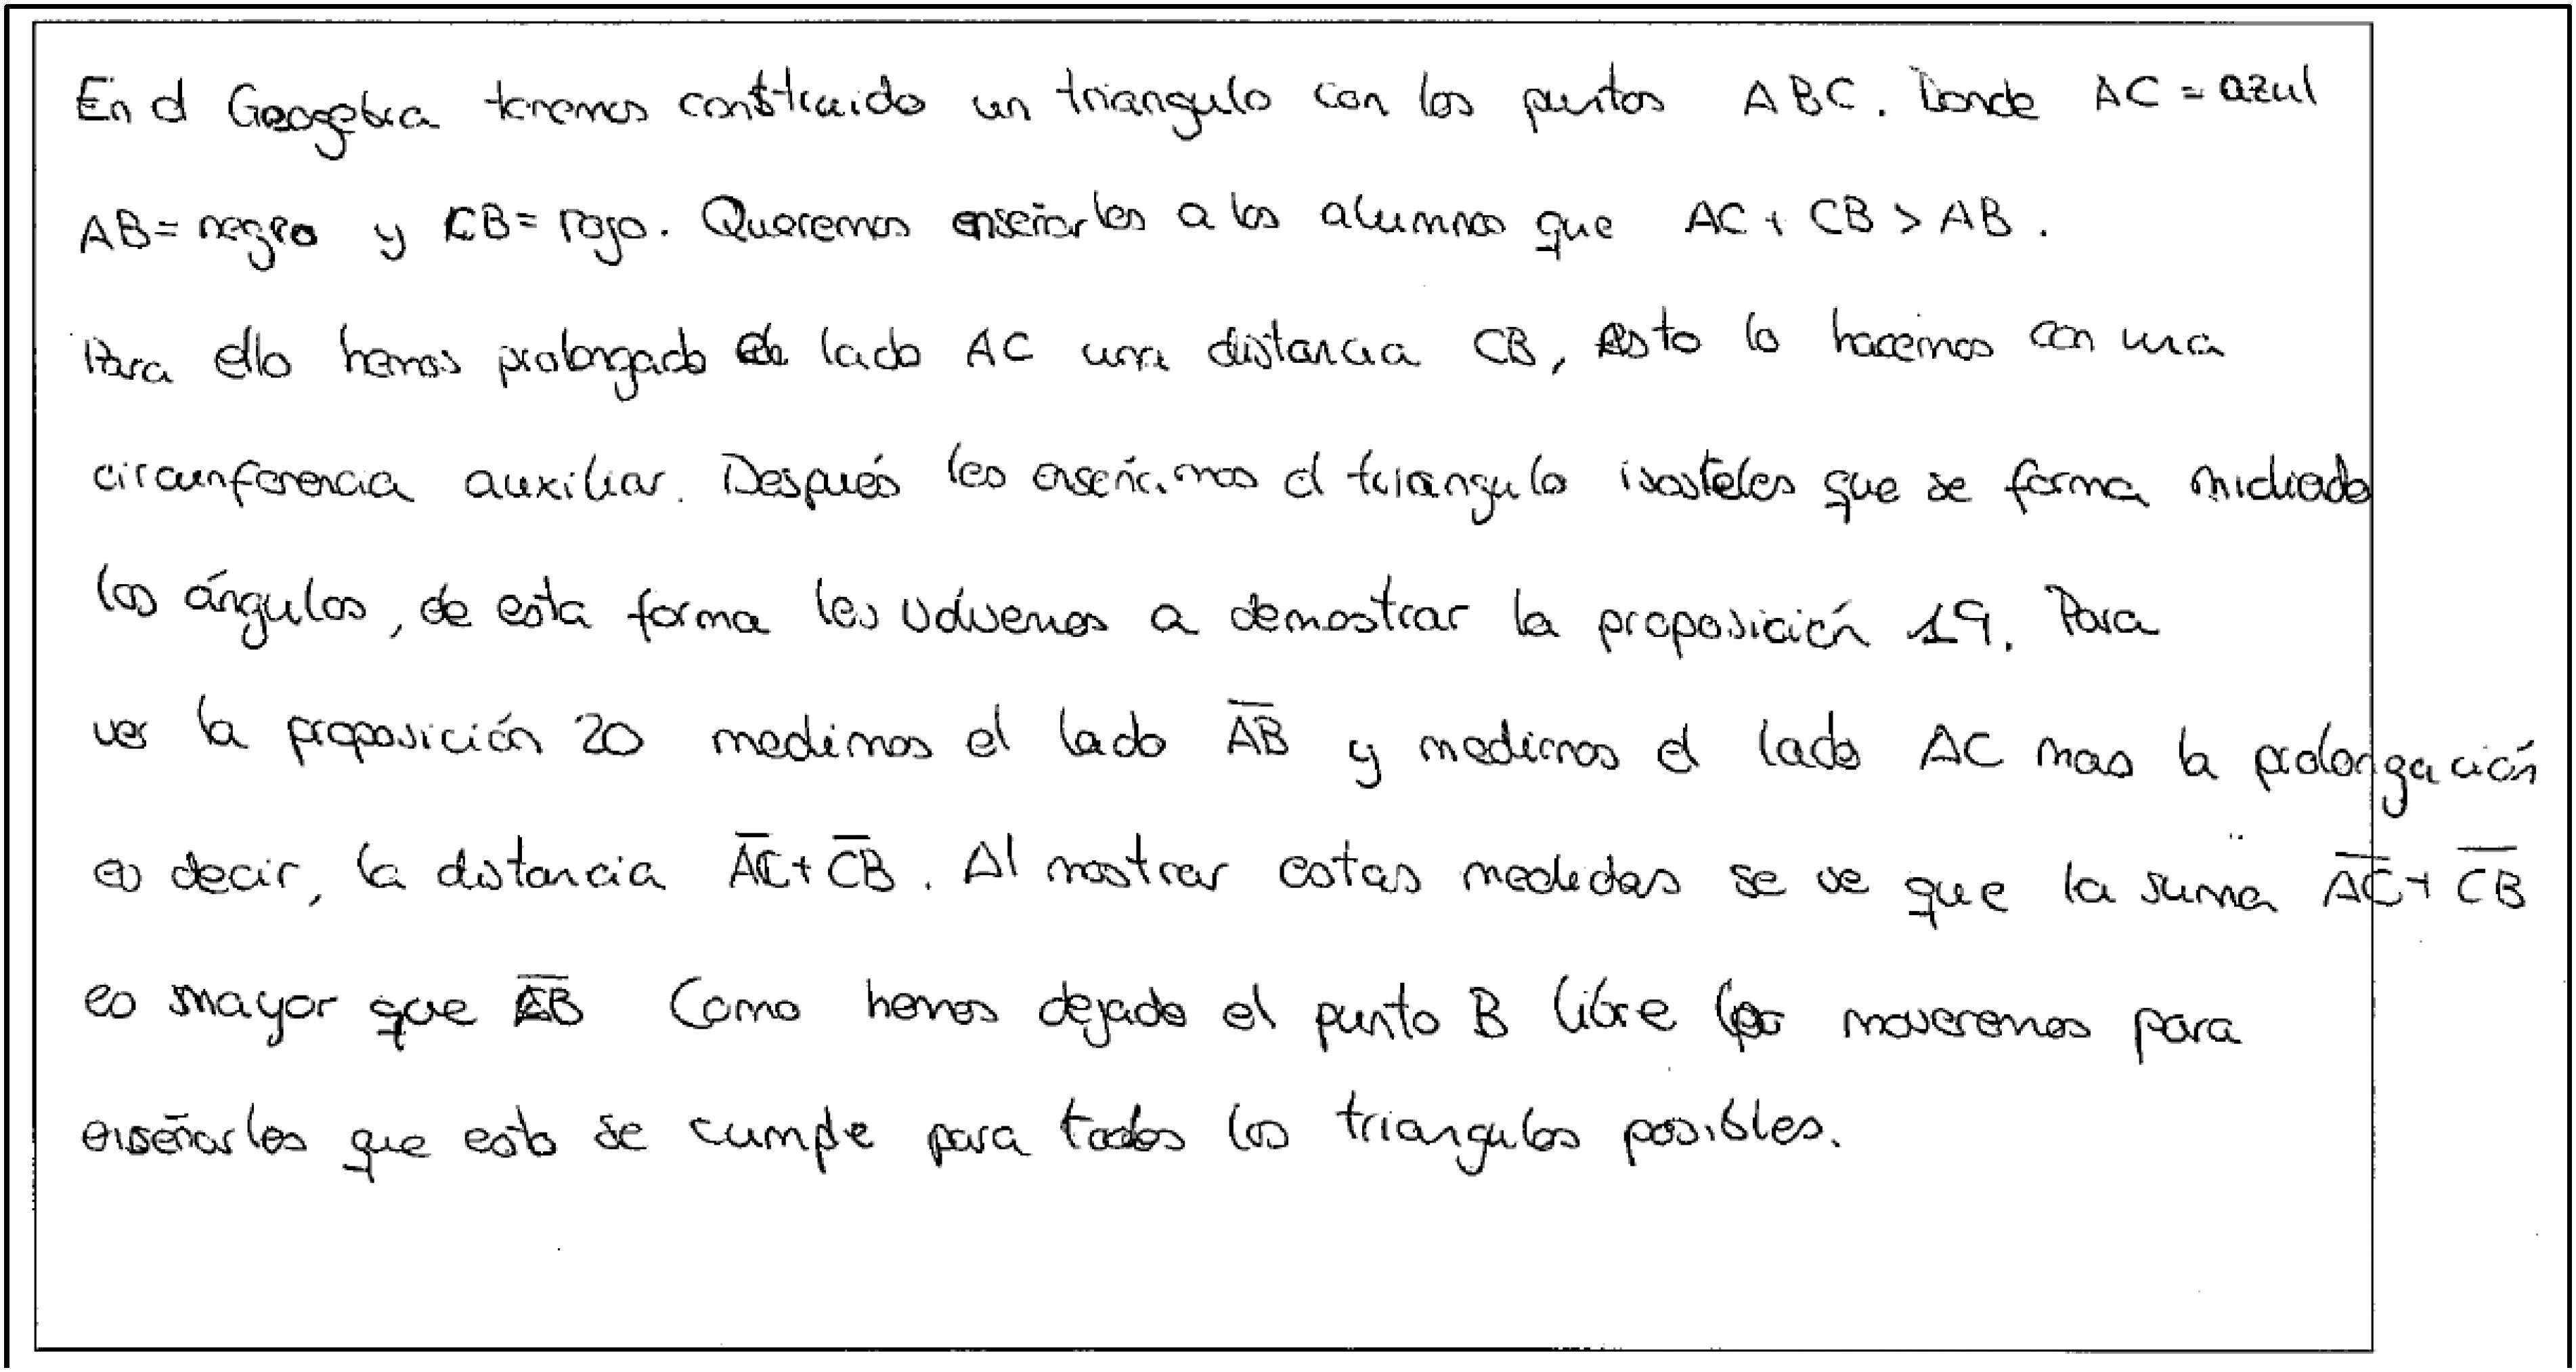 En el Geogebra tenemos construido un triangulo con los puntos ABC. Donde AC = azul
AB = negro y CB = rojo. Queremos enseñarles a los alumnos que AC + CB > AB.
Para ello hemos prolongado el lado AC una distancia CB, esto lo hacemos con una
circunferencia auxiliar. Después les enseñamos el triangulo isosteles que se forma midiendo
los ángulos, de esta forma les volvemos a demostrar la proposición 19. Para
ver la proposición 20 medimos el lado A̅B̅ y medimos el lado AC mas la prolongación
es decir, la distancia A̅C̅ + C̅B̅. Al mostrar estas medidas se ve que la suma A̅C̅ + C̅B̅
es mayor que A̅B̅ Como hemos dejado el punto B libre lo moveremos para
enseñarles que esto se cumple para todos los triangulos posibles.